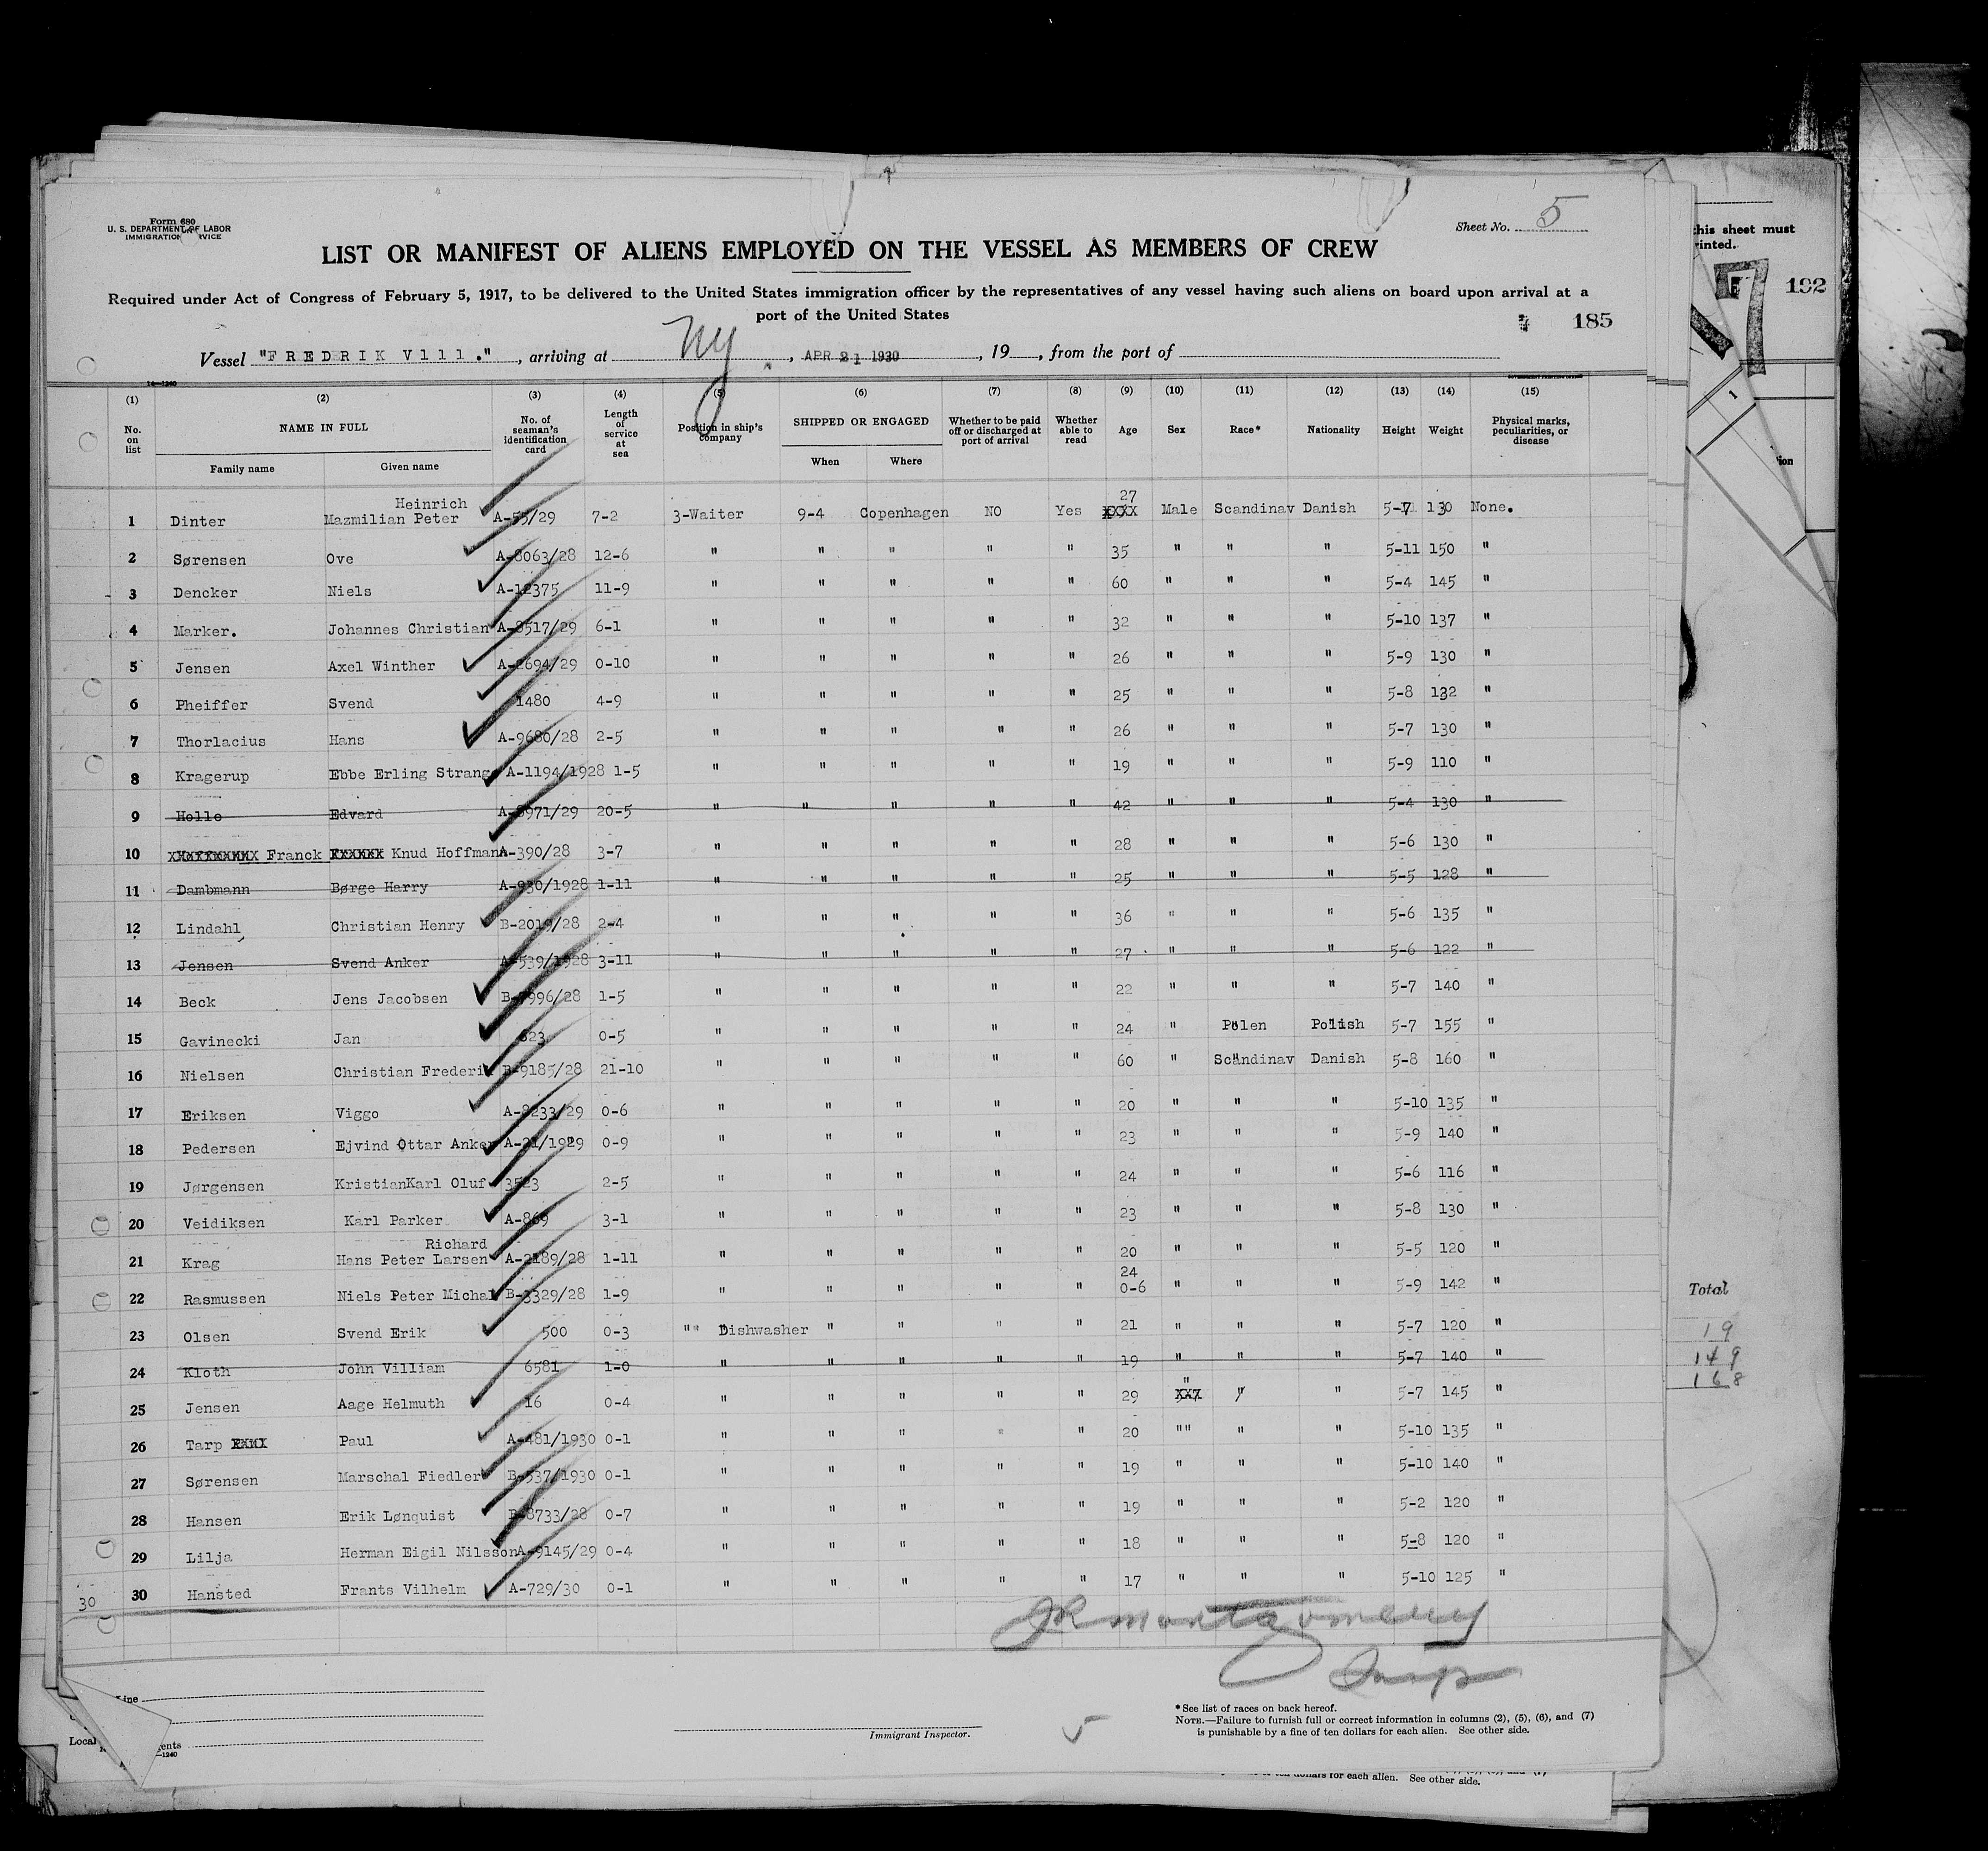 Form 680
U. S. DEPARTMENT OF LABOR
IMMIGRATION SERVICE
Sheet No. 5
LIST OR MANIFEST OF ALIENS EMPLOYED ON THE VESSEL AS MEMBERS OF CREW
Required under Act of Congress of February 5, 1917, to be delivered to the United States immigration officer by the representatives of any vessel having such aliens on board upon arrival at a
port of the United States
185
Vessel "FREDRIK V111.", arriving at Ny, APR 21 1930, 19, from the port of
14—1240
(1) (2) (3) (4) (5) (6) (7) (8) (9) (10) (11) (12) (13) (14) (15)
No. on list NAME IN FULL Family name Given name No. of seaman's identification card Length of service at sea Position in ship's company SHIPPED OR ENGAGED When Where Whether to be paid off or discharged at port of arrival Whether able to read Age Sex Race* Nationality Height Weight Physical marks, peculiarities, or disease
Heinrich 27
1 Dinter Mazmilian Peter A-55/29 7-2 3-Waiter 9-4 Copenhagen NO Yes XXX Male Scandinav Danish 5-7 130 None.
2 Sørensen Ove A-8063/28 12-6 " " " " " 35 " " " 5-11 150 "
3 Dencker Niels A-12375 11-9 " " " " " 60 " " " 5-4 145 "
4 Marker. Johannes Christian A-8517/29 6-1 " " " " " 32 " " " 5-10 137 "
5 Jensen Axel Winther A-2694/29 0-10 " " " " " 26 " " " 5-9 130 "
6 Pheiffer Svend 1480 4-9 " " " " " 25 " " " 5-8 132 "
7 Thorlacius Hans A-9686/28 2-5 " " " " " 26 " " " 5-7 130 "
8 Kragerup Ebbe Erling Strange A-1194/1928 1-5 " " " " " 19 " " " 5-9 110 "
9 Holle Edvard A-8971/29 20-5 " " " " " 42 " " " 5-4 130 "
10 Franck XXXXXX Knud Hoffmann A-390/28 3-7 " " " " " 28 " " " 5-6 130 "
11 Dambmann Børge Harry A-930/1928 1-11 " " " " " 25 " " " 5-5 128 "
12 Lindahl Christian Henry B-2019/28 2-4 " " " " " 36 " " " 5-6 135 "
13 Jensen Svend Anker A-539/1928 3-11 " " " " " 27 " " " 5-6 122 "
14 Beck Jens Jacobsen 1-5 " " " " " 22 " " " 5-7 140 "
15 Gavinecki Jan 0-5 " " " " " 24 " Polen Polish 5-7 155 "
16 Nielsen Christian Frederik B-9185/28 21-10 " " " " " 60 " Scandinav Danish 5-8 160 "
17 Eriksen Viggo A-8233/29 0-6 " " " " " 20 " " " 5-10 135 "
18 Pedersen Ejvind Ottar Anker A-21/1929 0-9 " " " " " 23 " " " 5-9 140 "
19 Jørgensen KristianKarl Oluf 3523 2-5 " " " " " 24 " " " 5-6 116 "
20 Veidiksen Karl Parker A-869 3-1 " " " " " 23 " " " 5-8 130 "
Richard
21 Krag Hans Peter Larsen A-2189/28 1-11 " " " " " 20 " " " 5-5 120 "
24
22 Rasmussen Niels Peter Michal B-3329/28 1-9 " " " " " 0-6 " " " 5-9 142 "
23 Olsen Svend Erik 500 0-3 "" Dishwasher " " " " 21 " " " 5-7 120 "
24 Kloth John Villiam 6581 1-0 " " " " " 19 " " " 5-7 140 "
25 Jensen Aage Helmuth 16 0-4 " " " " " 29 " XXX " " 5-7 145 "
26 Tarp Paul A-481/1930 0-1 " " " " " 20 "" " " 5-10 135 "
27 Sørensen Marschal Fiedler B-537/1930 0-1 " " " " " 19 " " " 5-10 140 "
28 Hansen Erik Lønquist B-8733/28 0-7 " " " " " 19 " " " 5-2 120 "
29 Lilja Herman Eigil Nilsson A-9145/29 0-4 " " " " " 18 " " " 5-8 120 "
30 Hansted Frants Vilhelm A-729/30 0-1 " " " " " 17 " " " 5-10 125 "
30
JR Montgomery
Insp
Line
Local
ents
—1240
Immigrant Inspector.
5
*See list of races on back hereof.
NOTE.—Failure to furnish full or correct information in columns (2), (5), (6), and (7)
is punishable by a fine of ten dollars for each alien. See other side.
dollars for each alien. See other side.
this sheet must
rinted.
192
1
ion
Total
19
149
168